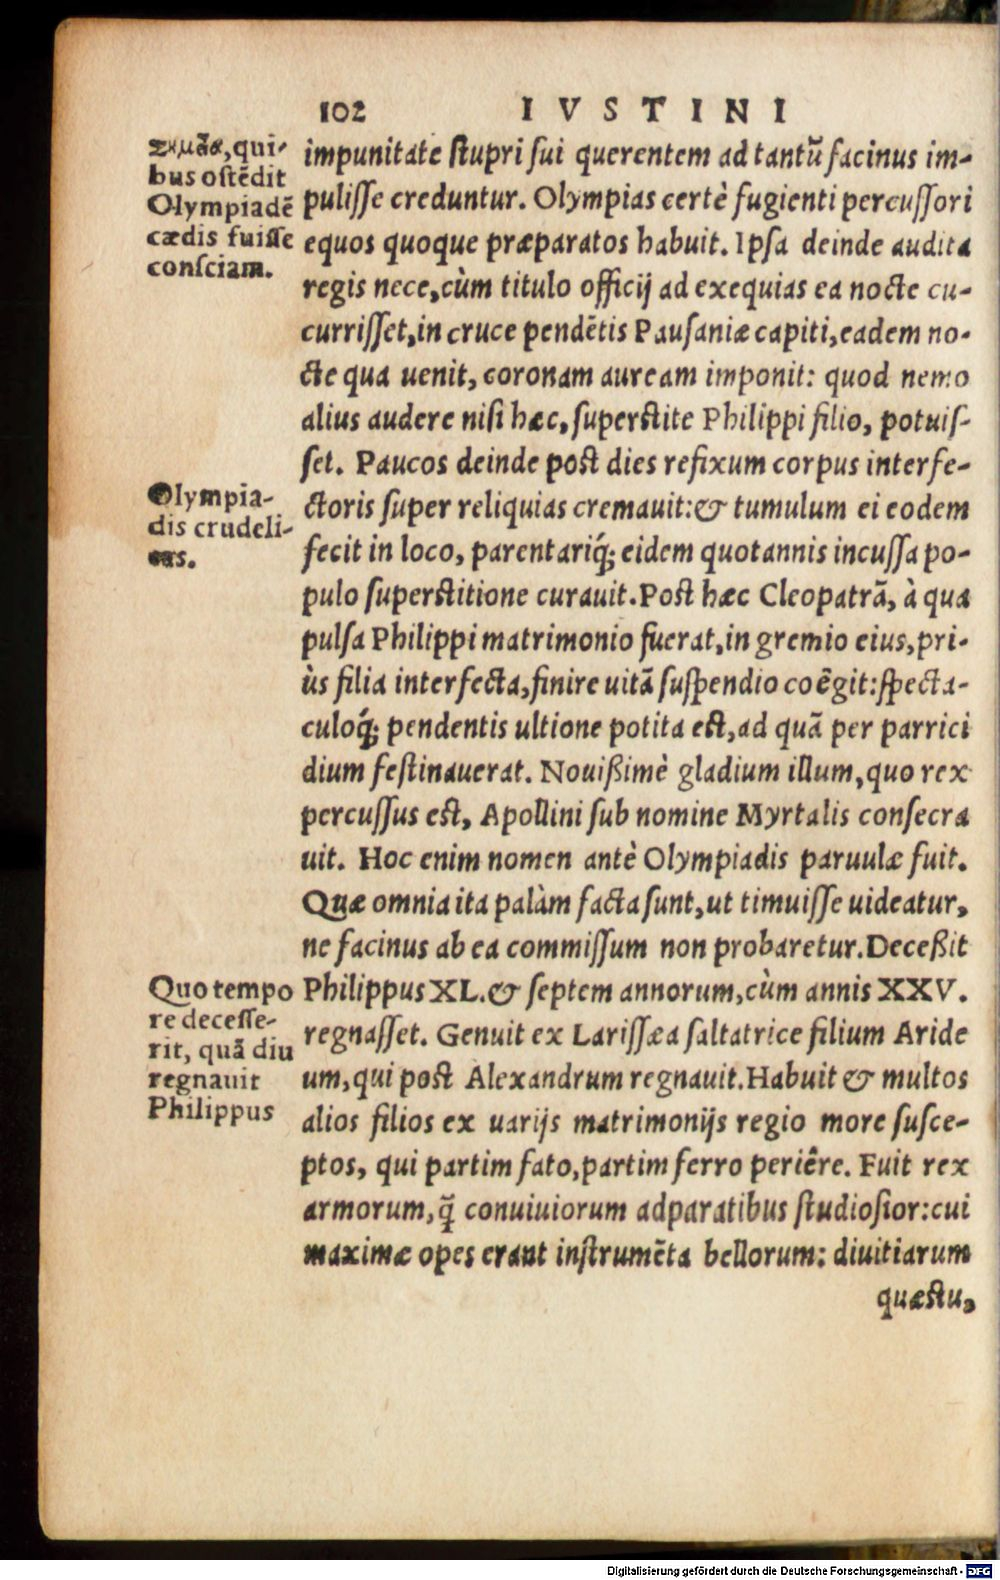 102 IVSTINI
impunitate stupri sui querentem ad tantũ facinus im-
pulisse creduntur. Olympias certè fugienti percussori
equos quoque præparatos habuit. Ipsa deinde audita
regis nece, cùm titulo officij ad exequias ea nocte cu-
currisset, in cruce pendẽtis Pausaniæ capiti, eadem no-
cte qua uenit, coronam auream imponit: quod nemo
alius audere nisi hæc, superstite Philippi filio, potuis-
set. Paucos deinde post dies refixum corpus interfe-
ctoris super reliquias cremauit: & tumulum ei eodem
fecit in loco, parentariq́; eidem quotannis incussa po-
pulo superstitione curauit. Post hæc Cleopatrã, à qua
pulsa Philippi matrimonio fuerat, in gremio eius, pri-
ùs filia interfecta, finire uitã suspendio coẽgit: specta-
culoq́; pendentis ultione potita est, ad quã per parrici
dium festinauerat. Nouißimè gladium illum, quo rex
percussus est, Apollini sub nomine Myrtalis consecra
uit. Hoc enim nomen antè Olympiadis paruulæ fuit.
Quæ omnia ita palàm facta sunt, ut timuisse uideatur,
ne facinus ab ea commissum non probaretur. Deceßit
Philippus XL. & septem annorum, cùm annis XXV.
regnasset. Genuit ex Larissæa saltatrice filium Aride
um, qui post Alexandrum regnauit. Habuit & multos
alios filios ex uarijs matrimonijs regio more susce-
ptos, qui partim fato, partim ferro periêre. Fuit rex
armorum, q̃ conuiuiorum adparatibus studiosior: cui
maximæ opes erant instrumẽta bellorum: diuitiarum
quæstu,
qui-
bus ostẽdit
Olympiadẽ
cædis fuisse
consciam.
Olympia-
dis crudeli-
Quo tempo
re decesse-
rit, quã diu
regnauit
Philippus
Digitalisierung gefördert durch die Deutsche Forschungsgemeinschaft - DFG